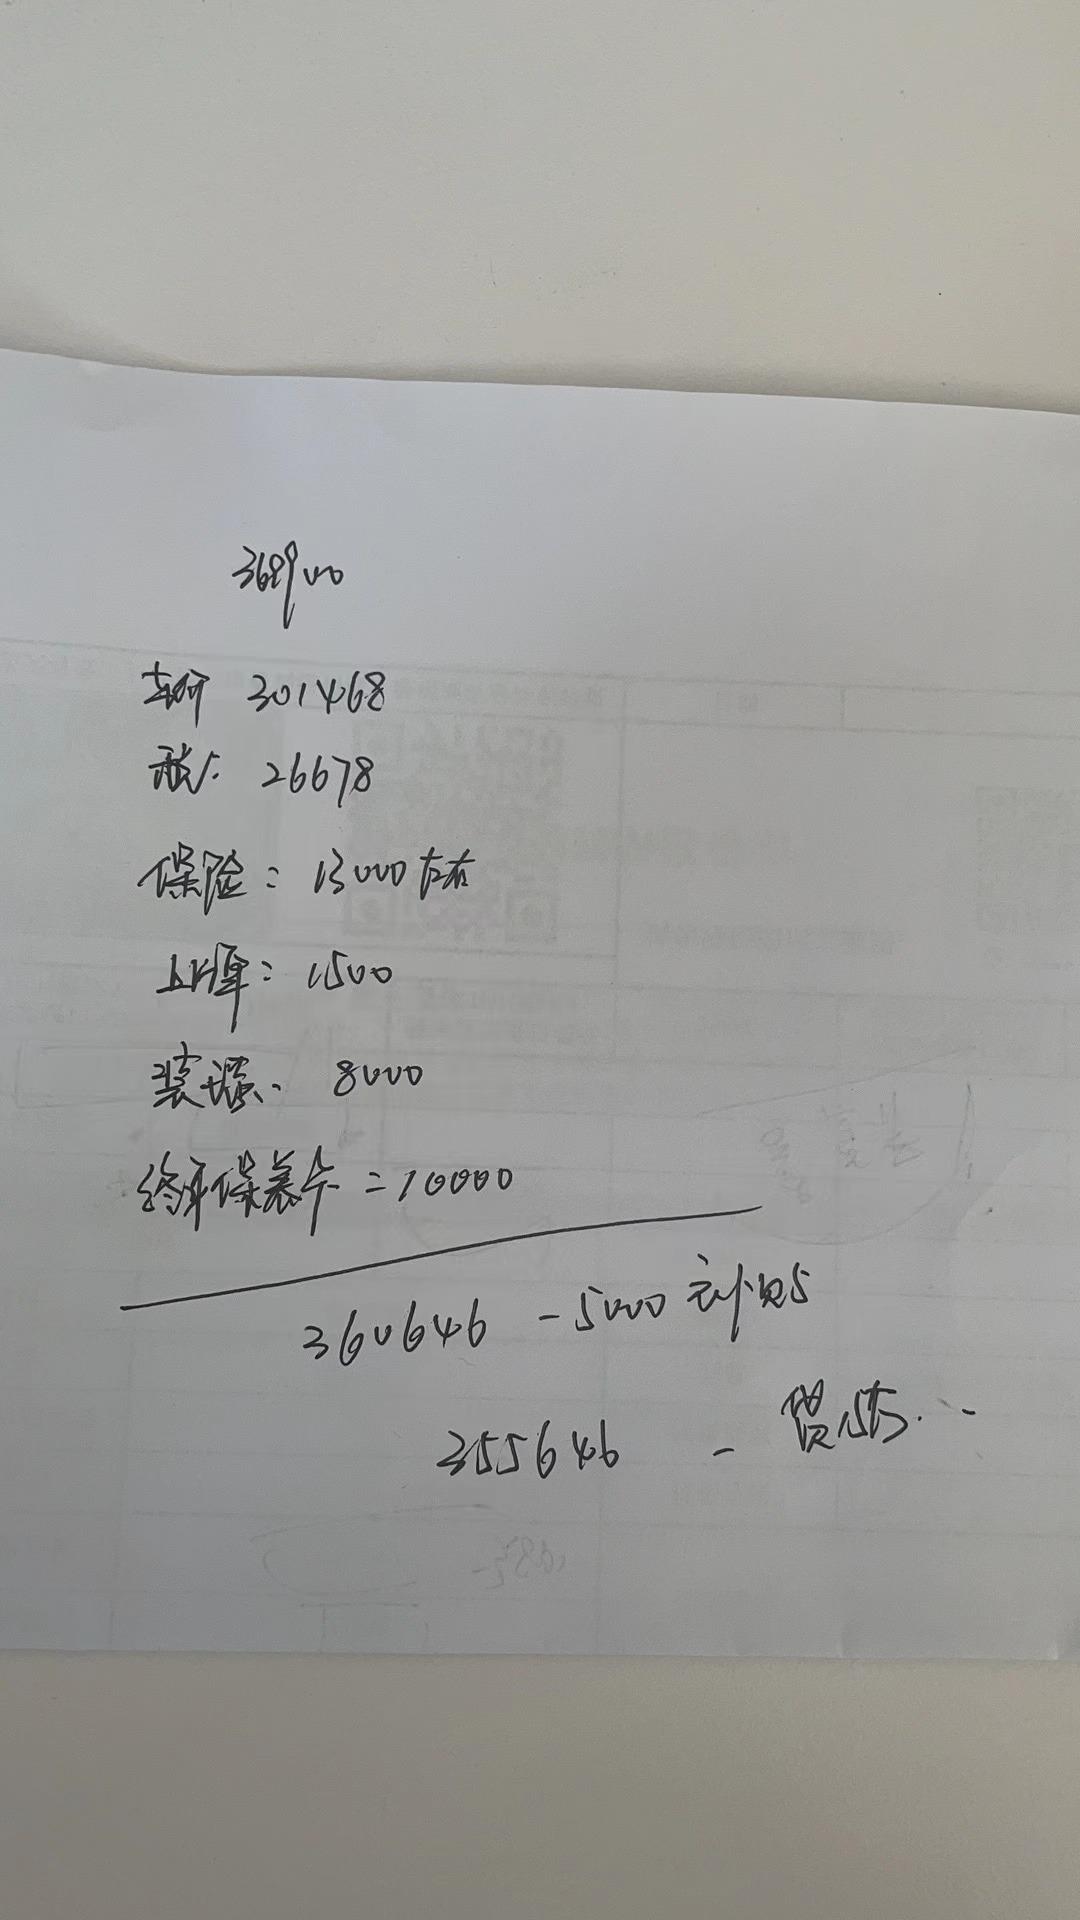 368900
车价 301468
税: 26678
保险: 13000左右
上牌: 1500
装潢: 8000
终身保养卡=10000
360646 -5000
355646 -